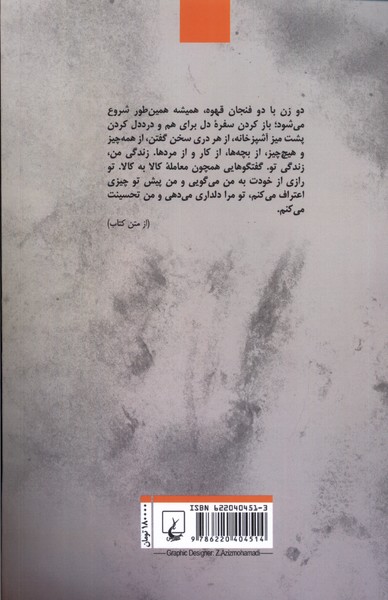 دو زن با دو فنجان قهوه، همیشه همین‌طور شروع
می‌شود؛ باز کردن سفرهٔ دل برای هم و درددل کردن
پشت میز آشپزخانه، از هر دری سخن گفتن، از همه‌چیز
و هیچ‌چیز، از بچه‌ها، از کار و از مردها. زندگی من،
زندگی تو. گفتگوهایی همچون معاملهٔ کالا به کالا. تو
رازی از خودت به من می‌گویی و من پیش تو چیزی
اعتراف می‌کنم، تو مرا دلداری می‌دهی و من تحسینت
می‌کنم.
(از متن کتاب)
ISBN 622040451-3
9 786220 404514
۱۸۰۰۰۰ تومان
Graphic Designer: Z.Azizmohamadi